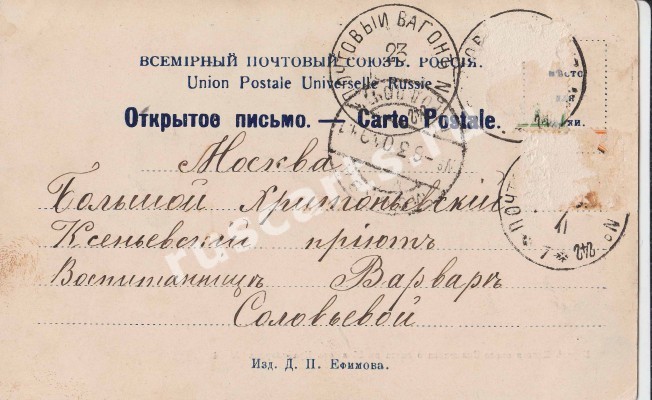 ВСЕМІРНЫЙ ПОЧТОВЫЙ СОЮЗЪ. РОССІЯ.
Union Postale Universelle Russie.
Открытое письмо. — Carte Postale.
ПОЧТОВЫЙ ВАГОНЪ №
23
мѣсто
для
Москва
Большой Харитоньевскій
Ксеньевскій пріютъ
Воспитанницѣ Варварѣ
Соловьевой
№ 242
Изд. Д. П. Ефимова.